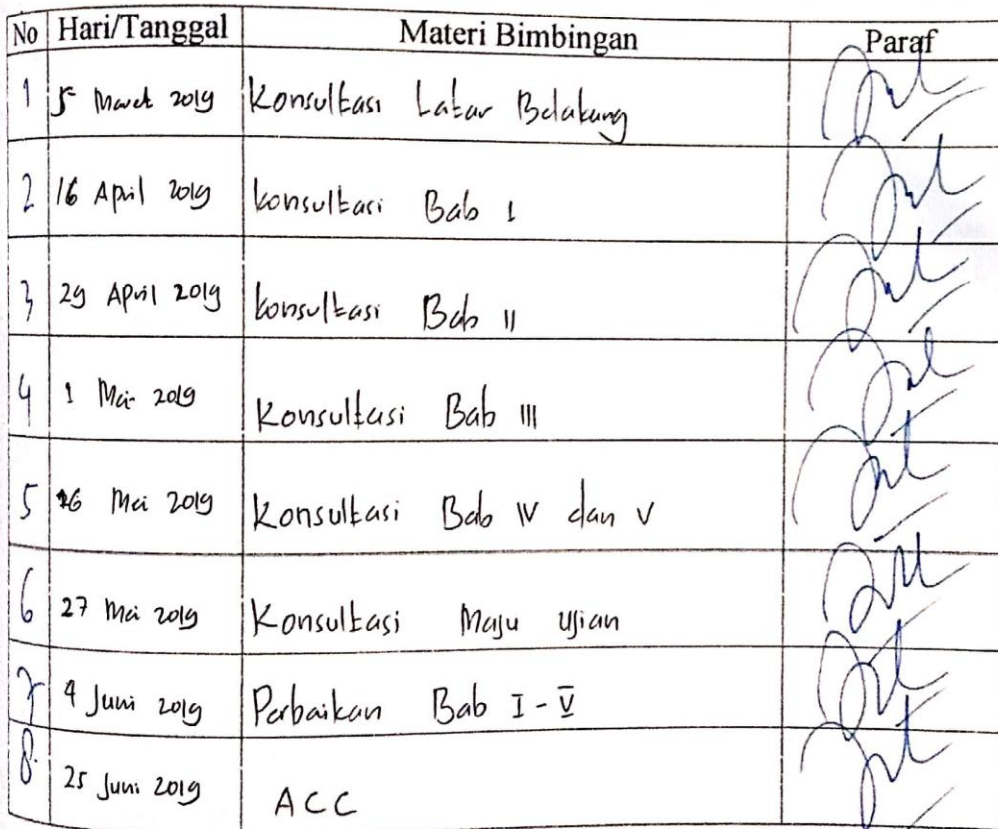 No Hari/Tanggal Materi Bimbingan Paraf
1 5 Maret 2019 Konsultasi Latar Belakang
2 16 April 2019 konsultasi Bab I
3 29 April 2019 konsultasi Bab II
4 1 Mei 2019 Konsultasi Bab III
5 16 Mei 2019 Konsultasi Bab IV dan V
6 27 Mei 2019 Konsultasi Maju Ujian
7 4 Juni 2019 Perbaikan Bab I - V
8. 25 Juni 2019 ACC